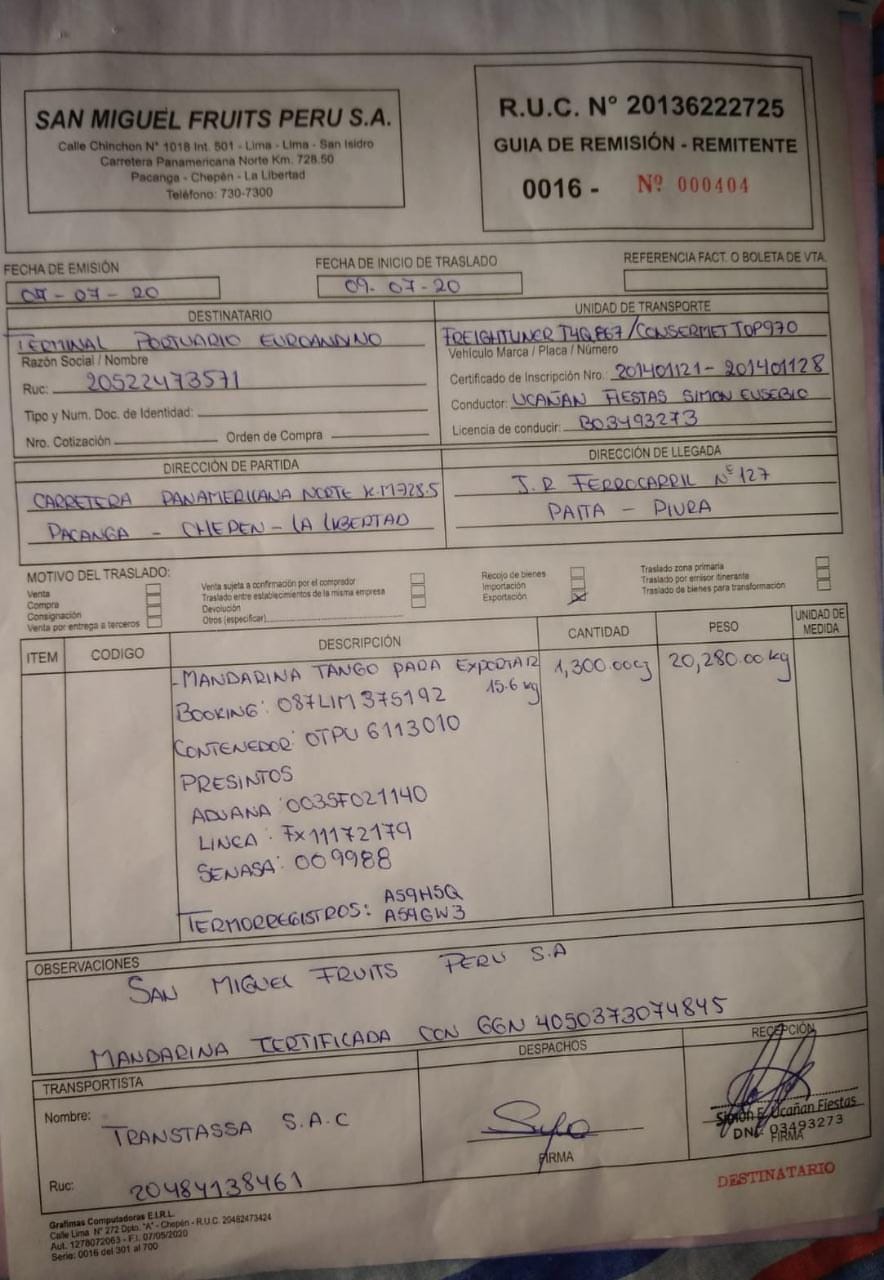 SAN MIGUEL FRUITS PERU S.A.
Calle Chinchon N° 1018 Int. 501 - Lima - Lima - San Isidro
Carretera Panamericana Norte Km. 728.50
Pacanga - Chepén - La Libertad
Teléfono: 730-7300
R.U.C. N° 20136222725
GUIA DE REMISIÓN - REMITENTE
0016 - Nº 000404
FECHA DE EMISIÓN
-07-20
FECHA DE INICIO DE TRASLADO
09-07-20
REFERENCIA FACT. O BOLETA DE VTA.
DESTINATARIO
TERMINAL PORTUARIO EUROANDINO
Razón Social / Nombre
Ruc: 20522473571
Tipo y Num. Doc. de Identidad:
Nro. Cotización Orden de Compra
UNIDAD DE TRANSPORTE
FREIGHTLINER T4Q867/CONSERMET TOP970
Vehículo Marca / Placa / Número
Certificado de Inscripción Nro.: 201401121-201401128
Conductor: UCAÑAN FIESTAS SIMON EUSEBIO
Licencia de conducir: B03493273
DIRECCIÓN DE PARTIDA
CARRETERA PANAMERICANA NORTE K.M728.5
PACANGA - CHEPEN - LA LIBERTAD
DIRECCIÓN DE LLEGADA
J.R FERROCARRIL N° 127
PAITA - PIURA
MOTIVO DEL TRASLADO:
Venta
Compra
Consignación
Venta por entrega a terceros
Venta sujeta a confirmación por el comprador
Traslado entre establecimientos de la misma empresa
Devolución
Otros (especificar)
Recojo de bienes
Importación
Exportación X
Traslado zona primaria
Traslado por emisor itinerante
Traslado de bienes para transformación
ITEM CODIGO DESCRIPCIÓN CANTIDAD PESO UNIDAD DE MEDIDA
-MANDARINA TANGO PARA EXPORTAR 1,300.00cj 20,280.00 kg
15.6 kg
BOOKING: 087LIM375192
CONTENEDOR: OTPU 6113010
PRESINTOS
ADUANA: 0035F021140
LINEA: Fx11172179
SENASA: 009988
TERMORREGISTROS: A59H5Q
A59GW3
OBSERVACIONES
SAN MIGUEL FRUITS PERU S.A
MANDARINA CERTIFICADA CON GGN 4050373074845
TRANSPORTISTA
Nombre: TRANSTASSA S.A.C
Ruc: 20484138461
DESPACHOS
FIRMA
RECEPCIÓN
Simón E. Ucañan Fiestas
DNI: 03493273
FIRMA
DESTINATARIO
Grafimas Computadoras E.I.R.L.
Calle Lima N° 272 Dpto. "A" - Chepén - R.U.C. 20482473424
Aut. 1278072063 - F.I. 07/05/2020
Serie: 0016 del 301 al 700